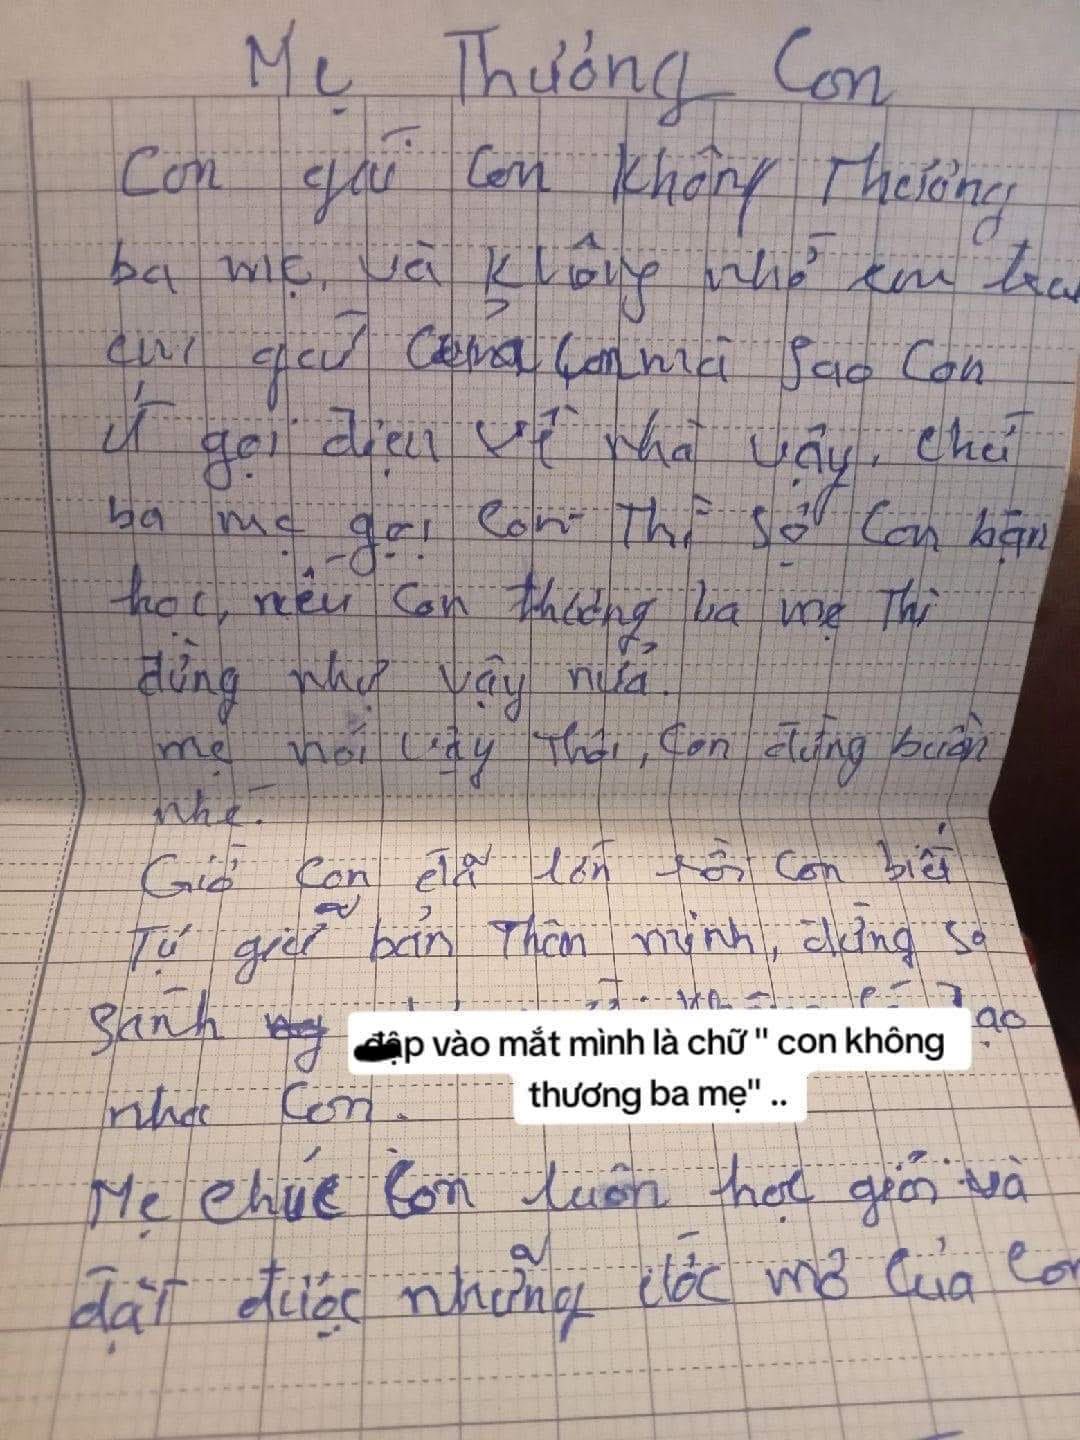 Mẹ Thương Con
Con gái Con không Thương
ba mẹ, và không nhớ em trai
em gái của Con mà sao Con
ít gọi điện về nhà vậy, chứ
ba mẹ gọi Con Thì sợ Con bận
học, nếu Con thương ba mẹ Thì
đừng như vậy nữa.
mẹ nói vậy Thôi, Con đừng buồn
nhé.
Giờ Con đã lớn rồi Con biết
Tự giữ bản Thân mình, đừng so
Sánh
đập vào mắt mình là chữ " con không
thương ba mẹ" ..
nhoc Con.
Mẹ chúc Con luôn học giỏi và
đạt được những ước mơ của Con